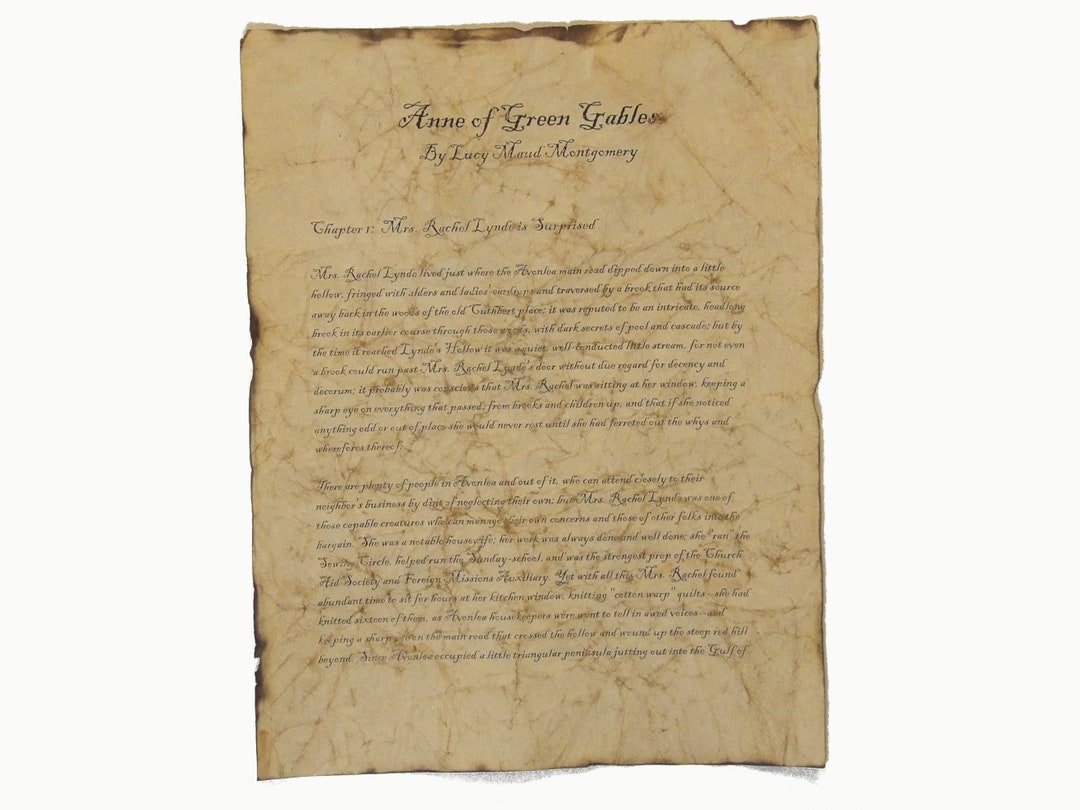 Anne of Green Gables
By Lucy Maud Montgomery
Chapter 1: Mrs. Rachel Lynde is Surprised
Mrs. Rachel Lynde lived just where the Avonlea main road dipped down into a little
hollow, fringed with alders and ladies' eardrops and traversed by a brook that had its source
away back in the woods of the old Cuthbert place; it was reputed to be an intricate, headlong
brook in its earlier course through those woods, with dark secrets of pool and cascade; but by
the time it reached Lynde's Hollow it was a quiet, well-conducted little stream, for not even
a brook could run past Mrs. Rachel Lynde's door without due regard for decency and
decorum; it probably was conscious that Mrs. Rachel was sitting at her window, keeping a
sharp eye on everything that passed, from brooks and children up, and that if she noticed
anything odd or out of place she would never rest until she had ferreted out the whys and
wherefores thereof.
There are plenty of people in Avonlea and out of it, who can attend closely to their
neighbor's business by dint of neglecting their own; but Mrs. Rachel Lynde was one of
those capable creatures who can manage their own concerns and those of other folks into the
bargain. She was a notable housewife; her work was always done and well done; she "ran" the
Sewing Circle, helped run the Sunday-school, and was the strongest prop of the Church
Aid Society and Foreign Missions Auxiliary. Yet with all this Mrs. Rachel found
abundant time to sit for hours at her kitchen window, knitting "cotton warp" quilts--she had
knitted sixteen of them, as Avonlea housekeepers were wont to tell in awed voices--and
keeping a sharp eye on the main road that crossed the hollow and wound up the steep red hill
beyond. Since Avonlea occupied a little triangular peninsula jutting out into the Gulf of